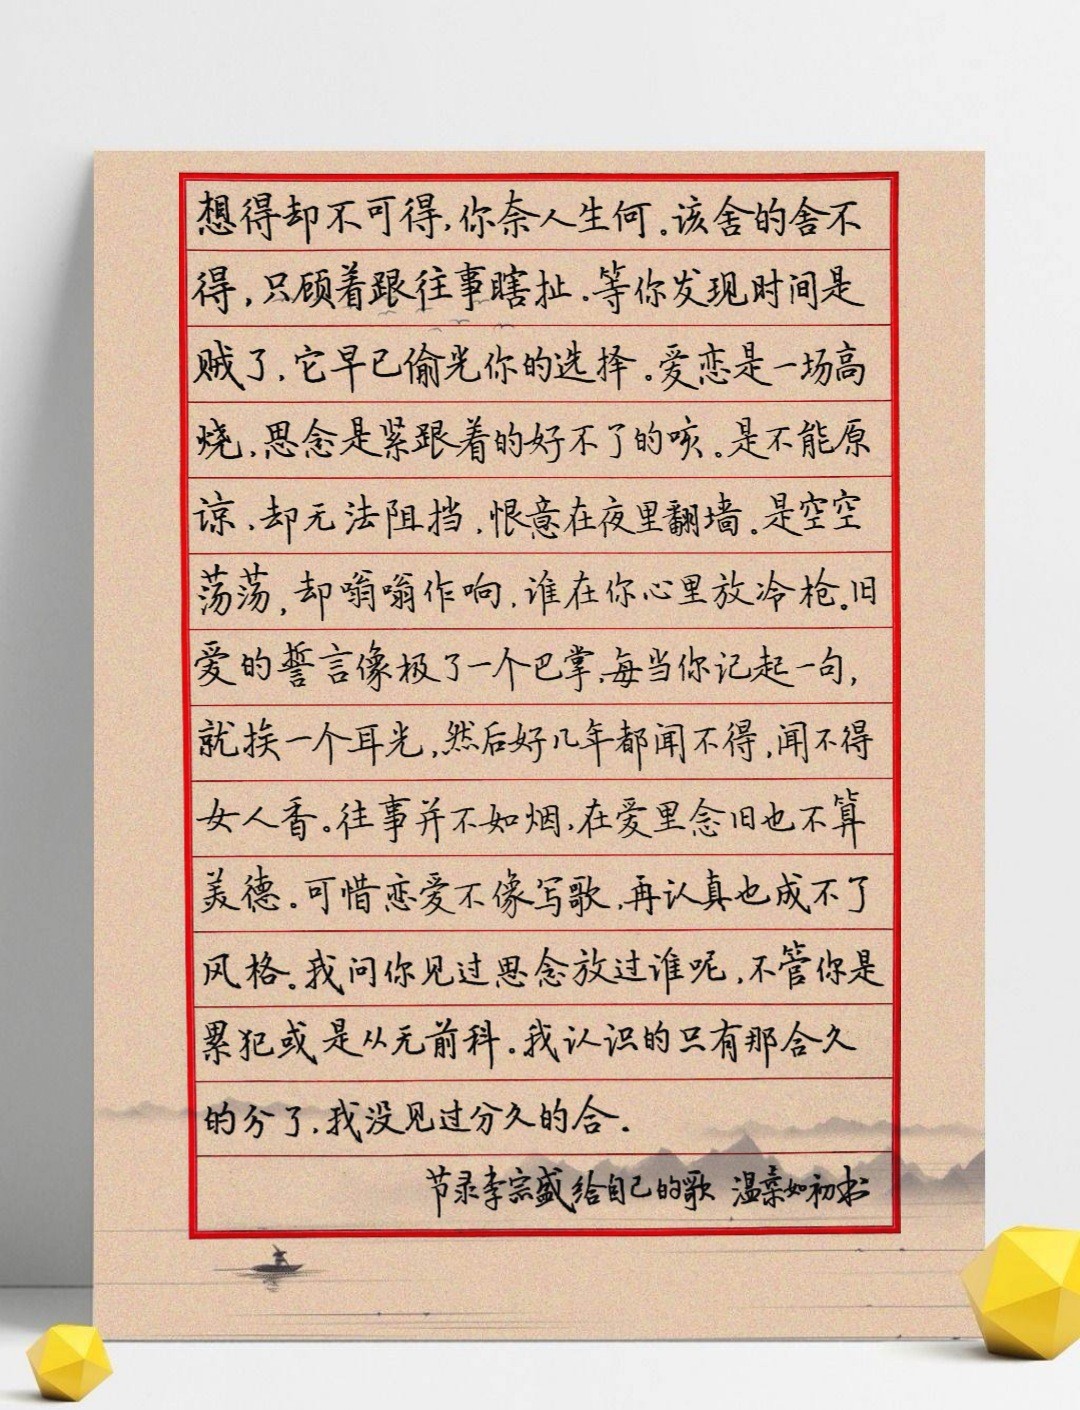 想得却不可得,你奈人生何。该舍的舍不
得,只顾着跟往事瞎扯.等你发现时间是
贼了,它早已偷光你的选择。爱恋是一场高
烧,思念是紧跟着的好不了的咳。是不能原
谅,却无法阻挡,恨意在夜里翻墙。是空空
荡荡,却嗡嗡作响,谁在你心里放冷枪。旧
爱的誓言像极了一个巴掌,每当你记起一句,
就挨一个耳光,然后好几年都闻不得,闻不得
女人香。往事并不如烟,在爱里念旧也不算
美德。可惜恋爱不像写歌,再认真也成不了
风格。我问你见过思念放过谁呢,不管你是
累犯或是从无前科。我认识的只有那合久
的分了,我没见过分久的合.
节录李宗盛给自己的歌 温柔如初书